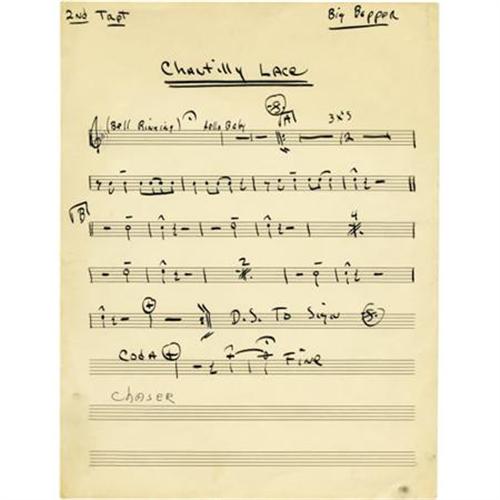 2nd Tapt Big Bopper
Chantilly Lace
(Bell Rinning) Hello Baby A 3 x's
2
B
4
2
D.S. To Sign
CODA Fine
Chaser